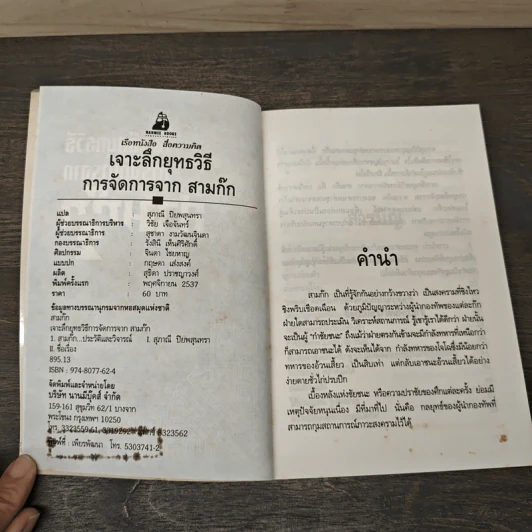 NANMEE BOOKS
เรือหนังสือ สื่อความคิด
เจาะลึกยุทธวิธี
การจัดการจาก สามก๊ก
แปล : สุภาณี ปิยพสุนทรา
ผู้ช่วยบรรณาธิการบริหาร : วิชัย เจือจันทร์
ผู้ช่วยบรรณาธิการ : สุชาดา งามวัฒนจินดา
กองบรรณาธิการ : รังสินี เห็นศิริศักดิ์
ศิลปกรรม : จินดา ไชยหาญ
แบบปก : กฤษดา เส่งสงค์
ผลิต : สุธิดา ปราชญาวงศ์
พิมพ์ครั้งแรก : พฤศจิกายน 2537
ราคา : 60 บาท
ข้อมูลทางบรรณานุกรมจากหอสมุดแห่งชาติ
สามก๊ก
เจาะลึกยุทธวิธีการจัดการจาก สามก๊ก
1. สามก๊ก...ประวัติและวิจารณ์ I. สุภาณี ปิยพสุนทรา
II. ชื่อเรื่อง
895.13
ISBN : 974-8077-62-4
จัดพิมพ์และจำหน่ายโดย
บริษัท นานมีบุ๊คส์ จำกัด
159-161 สุขุมวิท 62/1 บางจาก
พระโขนง กรุงเทพฯ 10250
3323562
เพียรพัฒนา โทร. 5303741-2
คำนำ
สามก๊ก เป็นที่รู้จักกันอย่างกว้างขวางว่า เป็นสงครามที่ชิงไหว
ชิงพริบเชือดเฉือน ด้วยภูมิปัญญาระหว่างผู้นำกองทัพของแต่ละก๊ก
ฝ่ายใดสามารถประเมิน วิเคราะห์สถานการณ์ รู้เขารู้เราได้ดีกว่า ฝ่ายนั้น
จะเป็นผู้ "กำชัยชนะ" ถึงแม้ว่าฝ่ายตรงกันข้ามจะมีกำลังทหารที่เหนือกว่า
ก็สามารถเอาชนะได้ ดังจะเห็นได้จาก กำลังทหารของโจโฉซึ่งมีน้อยกว่า
ทหารของอ้วนเสี้ยว เป็นสิบเท่า แต่กลับเอาชนะอ้วนเสี้ยวได้อย่าง
ง่ายดายชั่วไก่ปรบปีก
เบื้องหลังแห่งชัยชนะ หรือความปราชัยของศึกแต่ละครั้ง ย่อมมี
เหตุปัจจัยหนุนเนื่อง มีที่มาที่ไป นั่นคือ กลยุทธ์ของผู้นำกองทัพที่
สามารถกุมสถานการณ์ภาวะสงครามไว้ได้